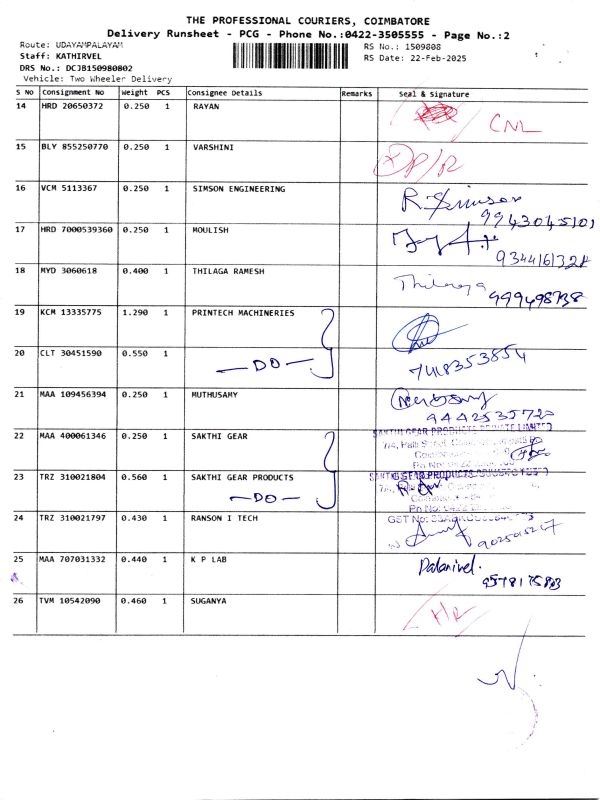 THE PROFESSIONAL COURIERS, COIMBATORE
Delivery Runsheet - PCG - Phone No.:0422-3505555 - Page No.:2
Route: UDAYAMPALAYAM
RS No.: 1509808
Staff: KATHIRVEL
RS Date: 22-Feb-2025
DRS No.: DCJB150980802
Vehicle: Two Wheeler Delivery
S No Consignment No Weight PCS Consignee Details Remarks Seal & Signature
14 HRD 20650372 0.250 1 RAYAN
CNL
15 BLY 855250770 0.250 1 VARSHINI
DP/R
16 VCM 5113367 0.250 1 SIMSON ENGINEERING
R. Simson
9943045101
17 HRD 7000539360 0.250 1 MOULISH
9344161328
18 MYD 3060618 0.400 1 THILAGA RAMESH
Thilaga
19 KCM 13335775 1.290 1 PRINTECH MACHINERIES
20 CLT 30451590 0.550 1
—DO—
7418353854
21 MAA 109456394 0.250 1 MUTHUSAMY
9442535720
22 MAA 400061346 0.250 1 SAKTHI GEAR
SAKTHI GEAR PRODUCTS PRIVATE LIMITED
23 TRZ 310021804 0.560 1 SAKTHI GEAR PRODUCTS
—DO—
24 TRZ 310021797 0.430 1 RANSON I TECH
GST No:
25 MAA 707031332 0.440 1 K P LAB
Palanivel.
26 TVM 10542090 0.460 1 SUGANYA